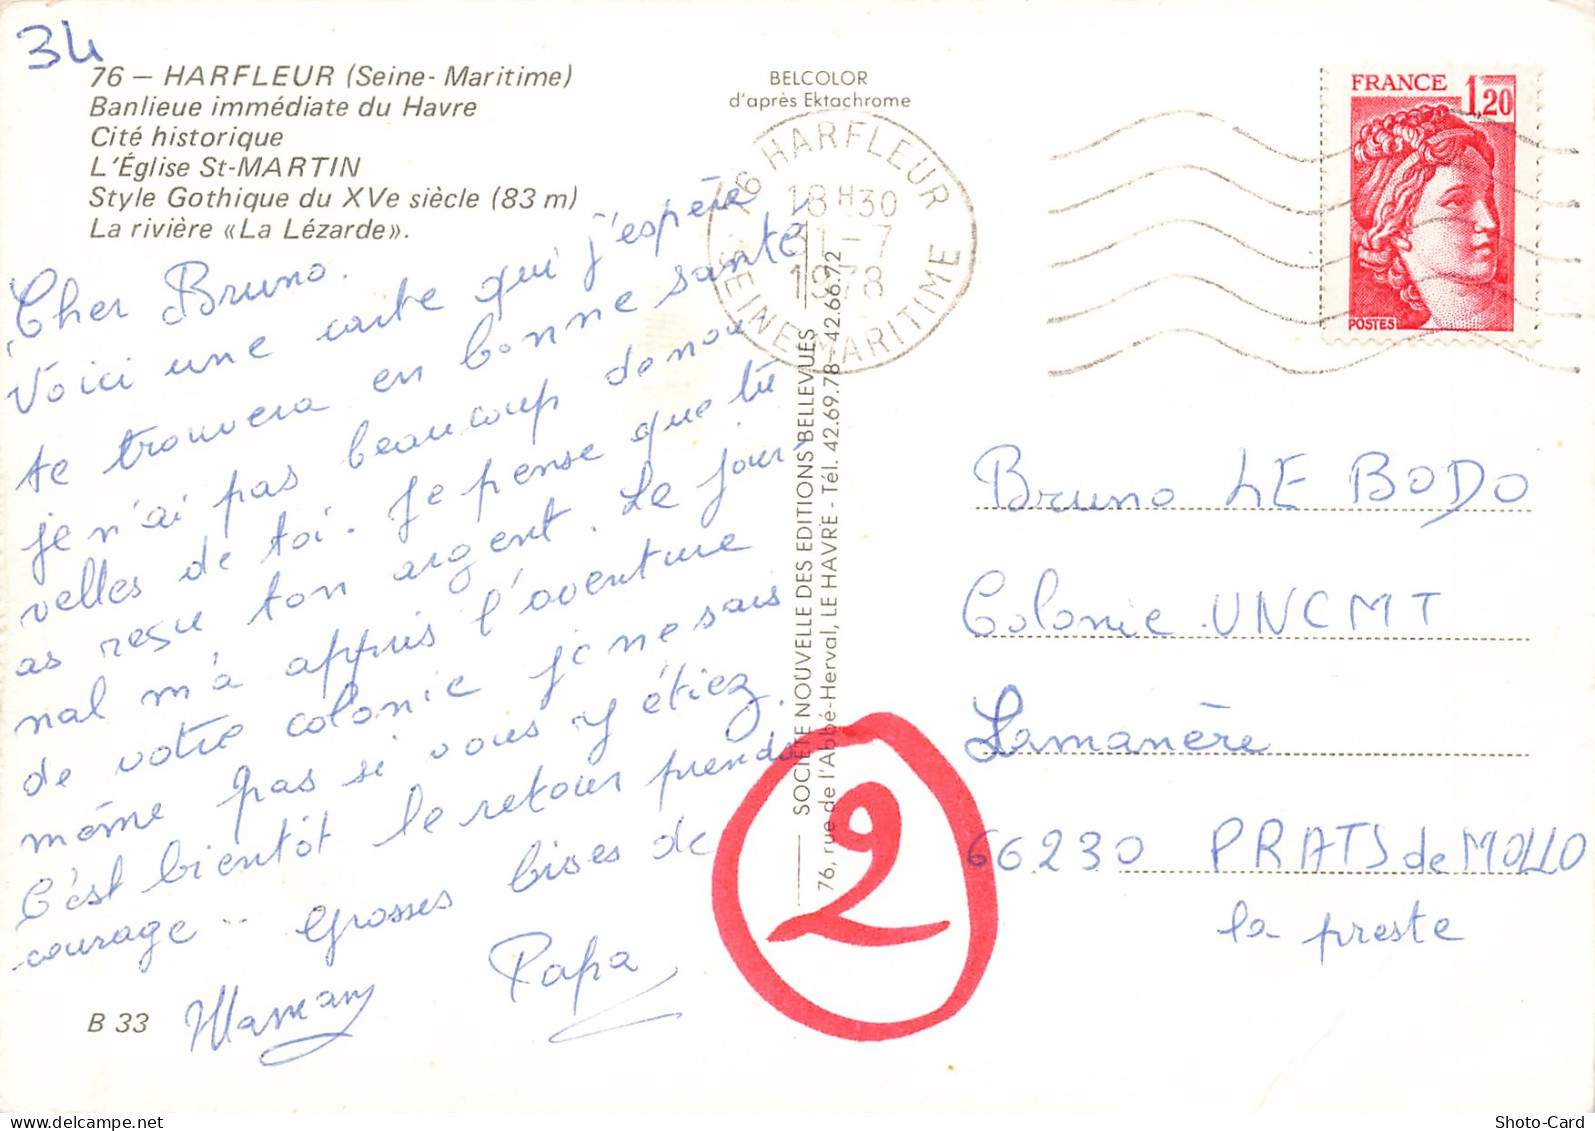 34
76 — HARFLEUR (Seine-Maritime)
Banlieue immédiate du Havre
Cité historique
L'Église St-MARTIN
Style Gothique du XVe siècle (83 m)
La rivière «La Lézarde».
Cher Bruno.
Voici une carte qui j'espère
te trouvera en bonne santé,
je n'ai pas beaucoup de nou
velles de toi. Je pense que tu
as reçu ton argent. Le jour-
nal m'a appris l'aventure
de votre colonie je ne sais
même pas si vous y étiez.
C'est bientôt le retour prends
courage.. Grosses bises de
Maman Papa
B 33
BELCOLOR
d'après Ektachrome
76 HARFLEUR
18H30
31-7
1978
SEINE-MARITIME
SOCIÉTÉ NOUVELLE DES EDITIONS BELLEVUES
76, rue de l'Abbé-Herval, LE HAVRE - Tél. 42.69.78 - 42.66.72
2
FRANCE 1,20
POSTES
Bruno LE BODO
Colonie UNCMT
Lamanère
66230 PRATS de MOLLO
la preste
Shoto-Card